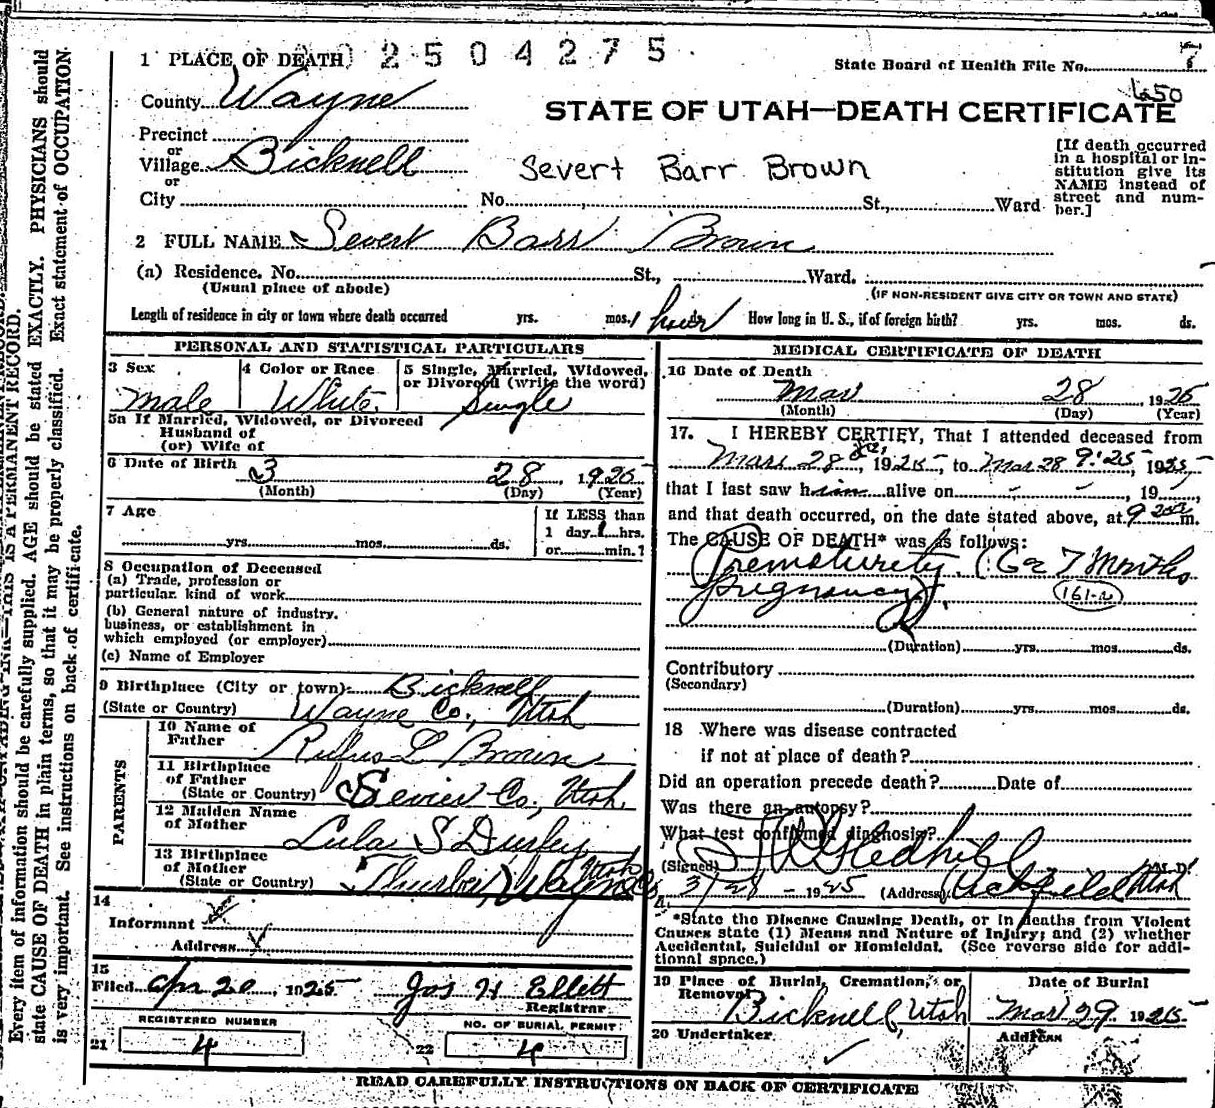 2504275
7
1 PLACE OF DEATH
State Board of Health File No.
650
County Wayne
STATE OF UTAH—DEATH CERTIFICATE
Precinct
or
Village Bicknell
Severt Barr Brown
[If death occurred in a hospital or institution give its NAME instead of street and number.]
or
City No. St., Ward
2 FULL NAME Severt Barr Brown
(a) Residence. No. St., Ward.
(Usual place of abode)
(IF NON-RESIDENT GIVE CITY OR TOWN AND STATE)
Length of residence in city or town where death occurred yrs. mos. 1 hour ds. How long in U. S., if of foreign birth? yrs. mos. ds.
PERSONAL AND STATISTICAL PARTICULARS
3 Sex
Male
4 Color or Race
White
5 Single, Married, Widowed, or Divorced (write the word)
Single
5a If Married, Widowed, or Divorced
Husband of
(or) Wife of
6 Date of Birth 3 28, 1925
(Month) (Day) (Year)
7 Age
yrs. mos. ds.
If LESS than
1 day 1 hrs.
or min.?
8 Occupation of Deceased
(a) Trade, profession or
particular kind of work
(b) General nature of industry.
business, or establishment in
which employed (or employer)
(c) Name of Employer
9 Birthplace (City or town) Bicknell
(State or Country) Wayne Co., Utah
PARENTS
10 Name of
Father Rufus L Brown
11 Birthplace
of Father
(State or Country) Sevier Co, Utah
12 Maiden Name
of Mother Lula S Durfey
13 Birthplace
of Mother
(State or Country) Thurber, Wayne Co, Utah
14
Informant
Address
15
Filed Apr 20, 1925 Jos H Ellett
Registrar
REGISTERED NUMBER
21 4
NO. OF BURIAL PERMIT
22 4
MEDICAL CERTIFICATE OF DEATH
16 Date of Death
Mar 28 1925
(Month) (Day) (Year)
17. I HEREBY CERTIFY, That I attended deceased from
Mar 28, 1925, to Mar 28 9:25, 1925,
that I last saw him alive on , 19 ,
and that death occurred, on the date stated above, at 9 m.
The CAUSE OF DEATH* was as follows:
Prematurity. (6 or 7 Months
pregnancy).
161-a
(Duration) yrs. mos. ds.
Contributory
(Secondary)
(Duration) yrs. mos. ds.
18 Where was disease contracted
if not at place of death?
Did an operation precede death? Date of
Was there an autopsy?
What test confirmed diagnosis?
(Signed) Gledhill M.D.
3/28 - 1925 (Address) Richfield Utah
*State the Disease Causing Death, or in deaths from Violent
Causes state (1) Means and Nature of Injury; and (2) whether
Accidental, Suicidal or Homicidal. (See reverse side for addi-
tional space.)
19 Place of Burial, Cremation, or
Removal Bicknell, Utah
Date of Burial
Mar 29 1925
20 Undertaker
Address
READ CAREFULLY INSTRUCTIONS ON BACK OF CERTIFICATE
Every item of information should be carefully supplied. AGE should be stated EXACTLY. PHYSICIANS should
state CAUSE OF DEATH in plain terms, so that it may be properly classified. Exact statement of OCCUPATION
is very important. See instructions on back of certificate.